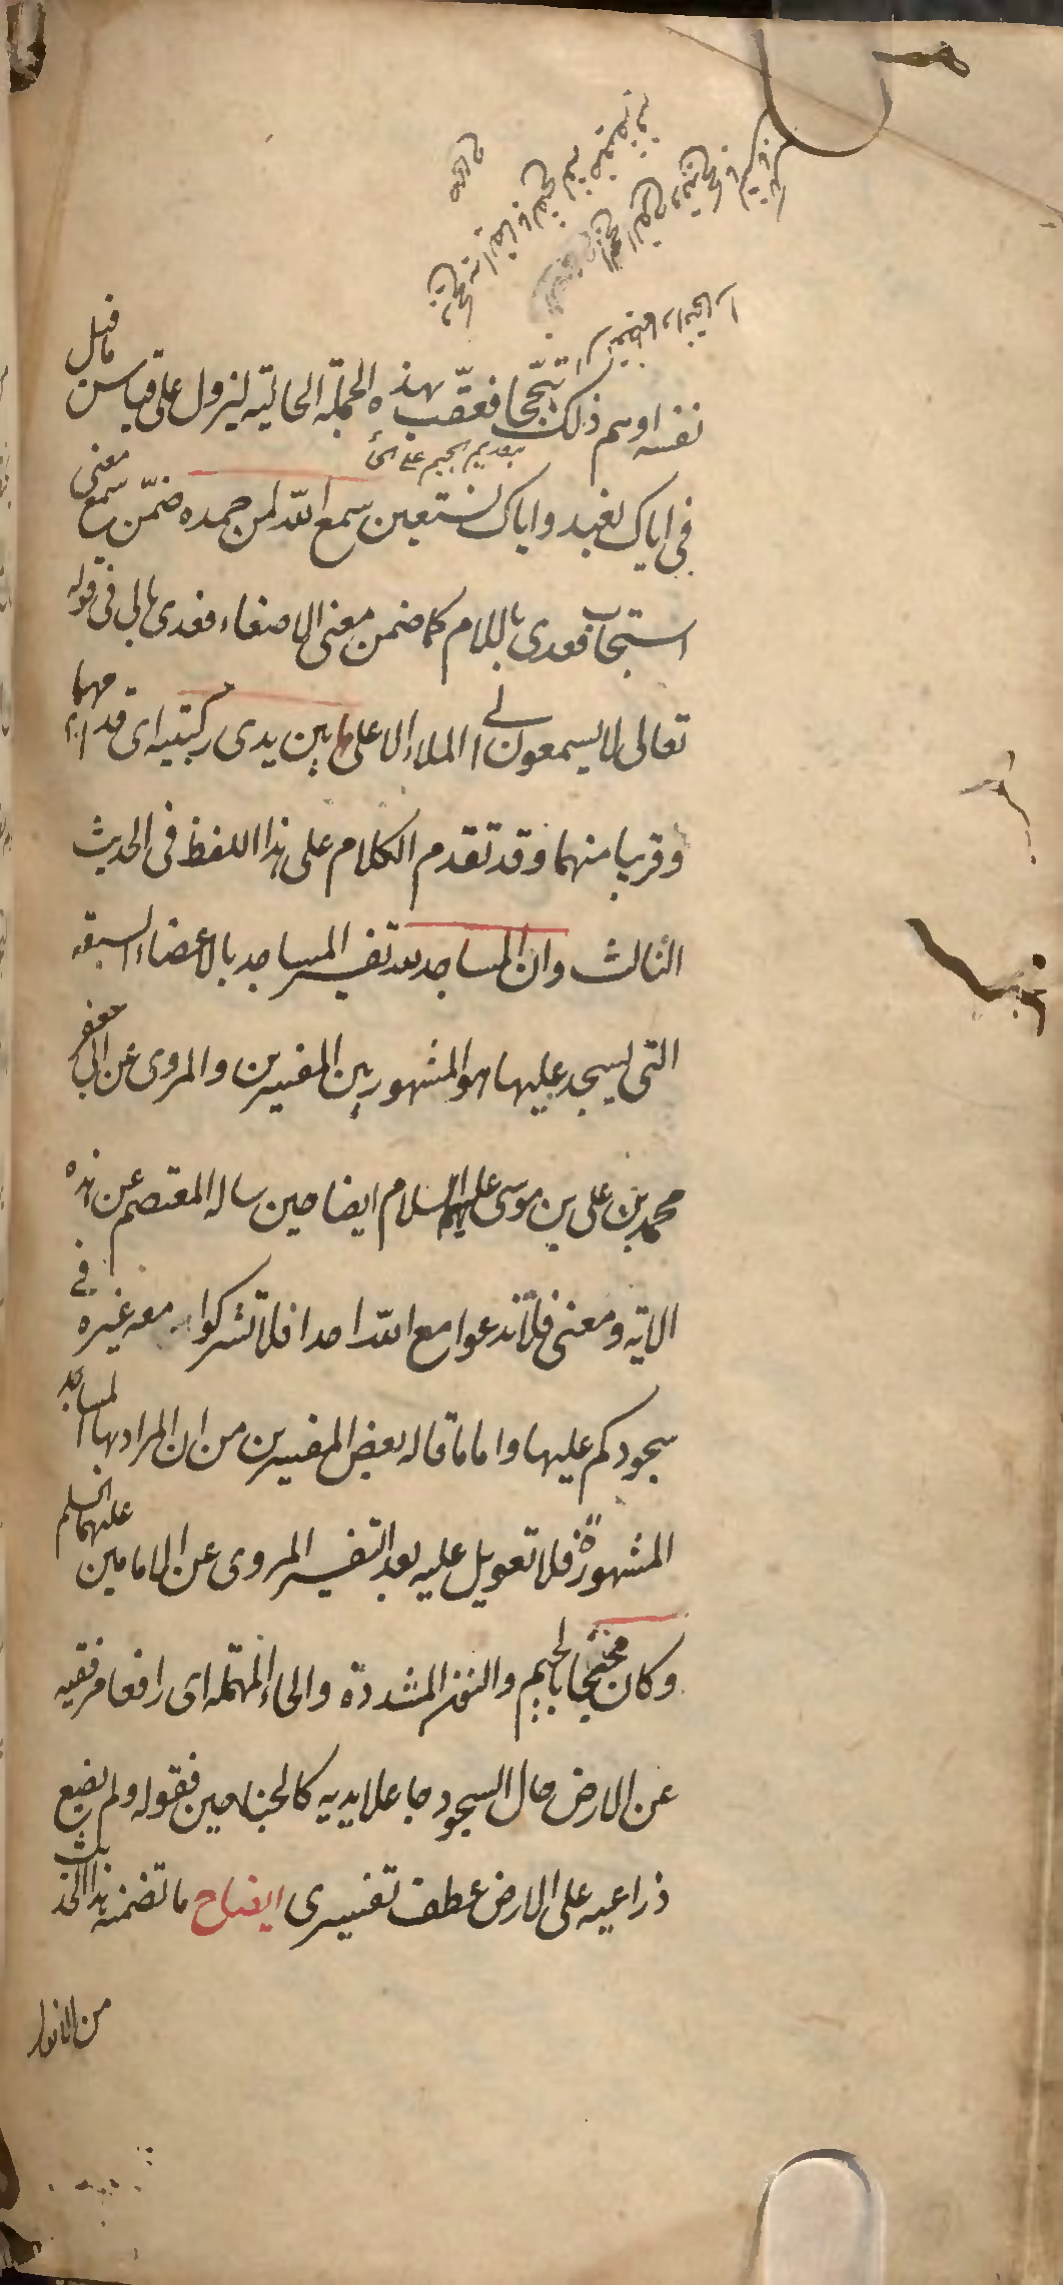 نفسه او سم ذلك تبجحا فعقب هذه الجملة الحالية ليزول على قياس ما قيل
بتقديم الجيم على الحاء
فى اياك نعبد واياك نستعين سمع الله لمن حمده ضمن سمع معنى
استجاب فعدى باللام كما ضمن معنى الاصغاء فعدى بالى فى قوله
تعالى لا يسمعون الى الملاء الاعلى بين يدى ركبتيه اى قدامهما
وقريبا منهما وقد تقدم الكلام على هذا اللفظ فى الحديث
الثالث وان المساجد لله تفسير المساجد بالاعضاء السبعة
التى يسجد عليها هو المشهور بين المفسرين والمروى عن ابى جعفر
محمد بن على بن موسى عليهم السلام ايضا حين ساله المعتصم عن هذه
الاية ومعنى فلا تدعوا مع الله احدا فلا تشركوا معه غيره فى
سجودكم عليها واما ما قاله بعض المفسرين من ان المراد بها المساجد
المشهورة فلا تعويل عليه بعد التفسير المروى عن الامامين عليهما السلم
وكان مجنحا بالجيم والنون المشددة والحاء المهملة اى رافعا مرفقيه
عن الارض حال السجود جاعلا يديه كالجناحين فقوله ولم يضع
ذراعيه على الارض عطف تفسيرى ايضاح ما تضمنه هذا الحديث
من الانوار